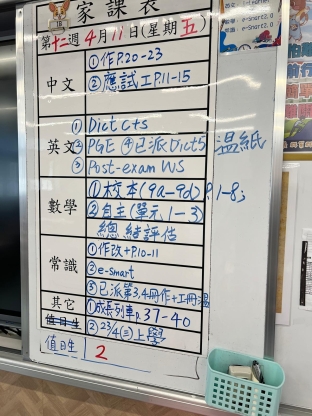 家課表
第十二週 4月11日(星期五)
中文
①作P.20-23
②應試工P.11-15
英文
① Dict cts
② PGE ④已派Dict5 溫紙
③ Post-exam WS
數學
①校本(9a-9d)P.1-8;
②自主(單元1-3)
總結評估
常識
①作改+P.10-11
②e-smart
③已派第3,4冊作+工冊溫
其它
①成長列車p.37-40
②23/4(三)上學
值日生
值日生
2